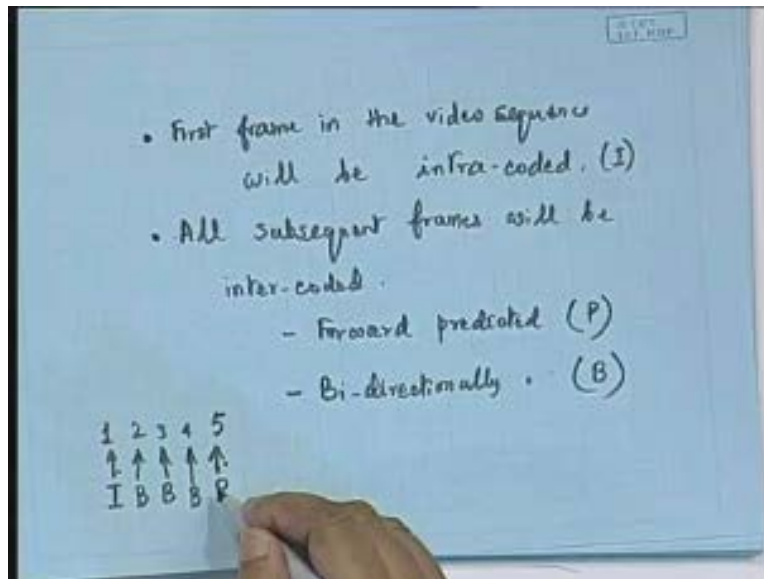 • First frame in the video sequence
will be intra-coded. (I)
• All subsequent frames will be
inter-coded.
- Forward predicted (P)
- Bi-directionally . (B)
1 2 3 4 5
↑ ↑ ↑ ↑ ↑
I B B B P